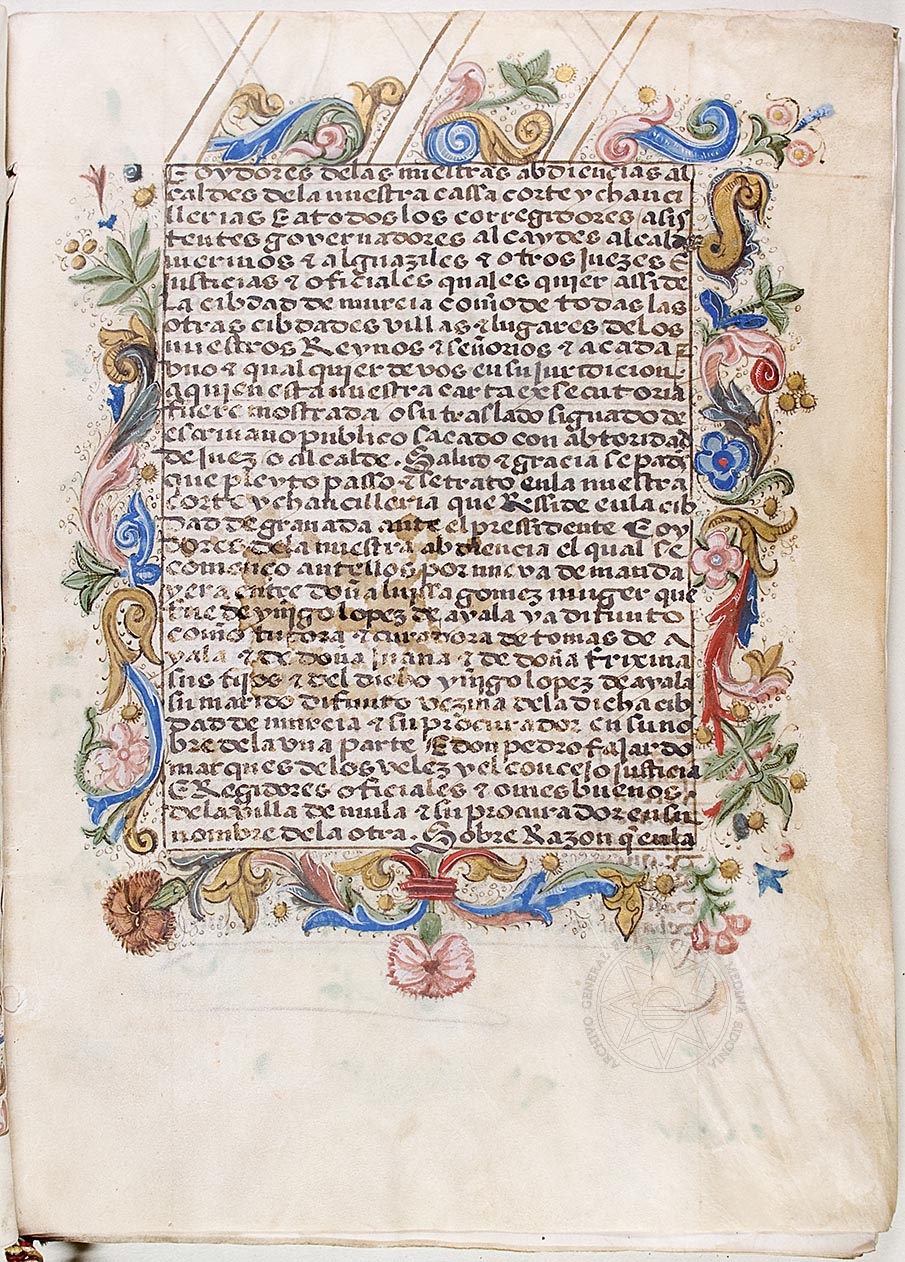 E oydores delas nuestras abdiencias al
caldes dela nuestra cassa corte y chanci
llerias E a todos los corregidores asis
tentes governadores alcaydes alcalds
merinos & alguaziles & otros Juezes E
Justicias & oficiales quales quier assi de
La cibdad de murcia como de todas las
otras cibdades villas & lugares delos
nuestros Reynos & señorios & a cada
vno & qual quier de vos en su Juridicion
a quien esta nuestra carta exsecutoria
fuere mostrada o su traslado signado de
escriuano publico sacado con abtoridad
de Juez o alcalde. Salud & gracia sepads
que pleyto passo & se trato en la nuestra
corte y chancilleria que Resside en la cib
dad de granada ante el pressidente E oy
dores dela nuestra abdiencia el qual se
començo ante llos por nueva demanda
y era entre doña luissa gomez muger que
fue de yñigo lopez de ayala ya difunto
como tutora & curadora de tomas de a
yala & de doña Juana & de doña
sus fijos & del dicho yñigo lopez de ayala
su marido difunto vezina dela dicha cib
dad de murcia & su procurador en su no
bre dela vna parte E don pedro fajardo
marques delos velez y el concejo Justicia
E Regidores oficiales & omes buenos
dela villa de mula & su procurador en su
nombre dela otra. Sobre Razon q en la
ARCHIVO GENERAL MEDINA SIDONIA